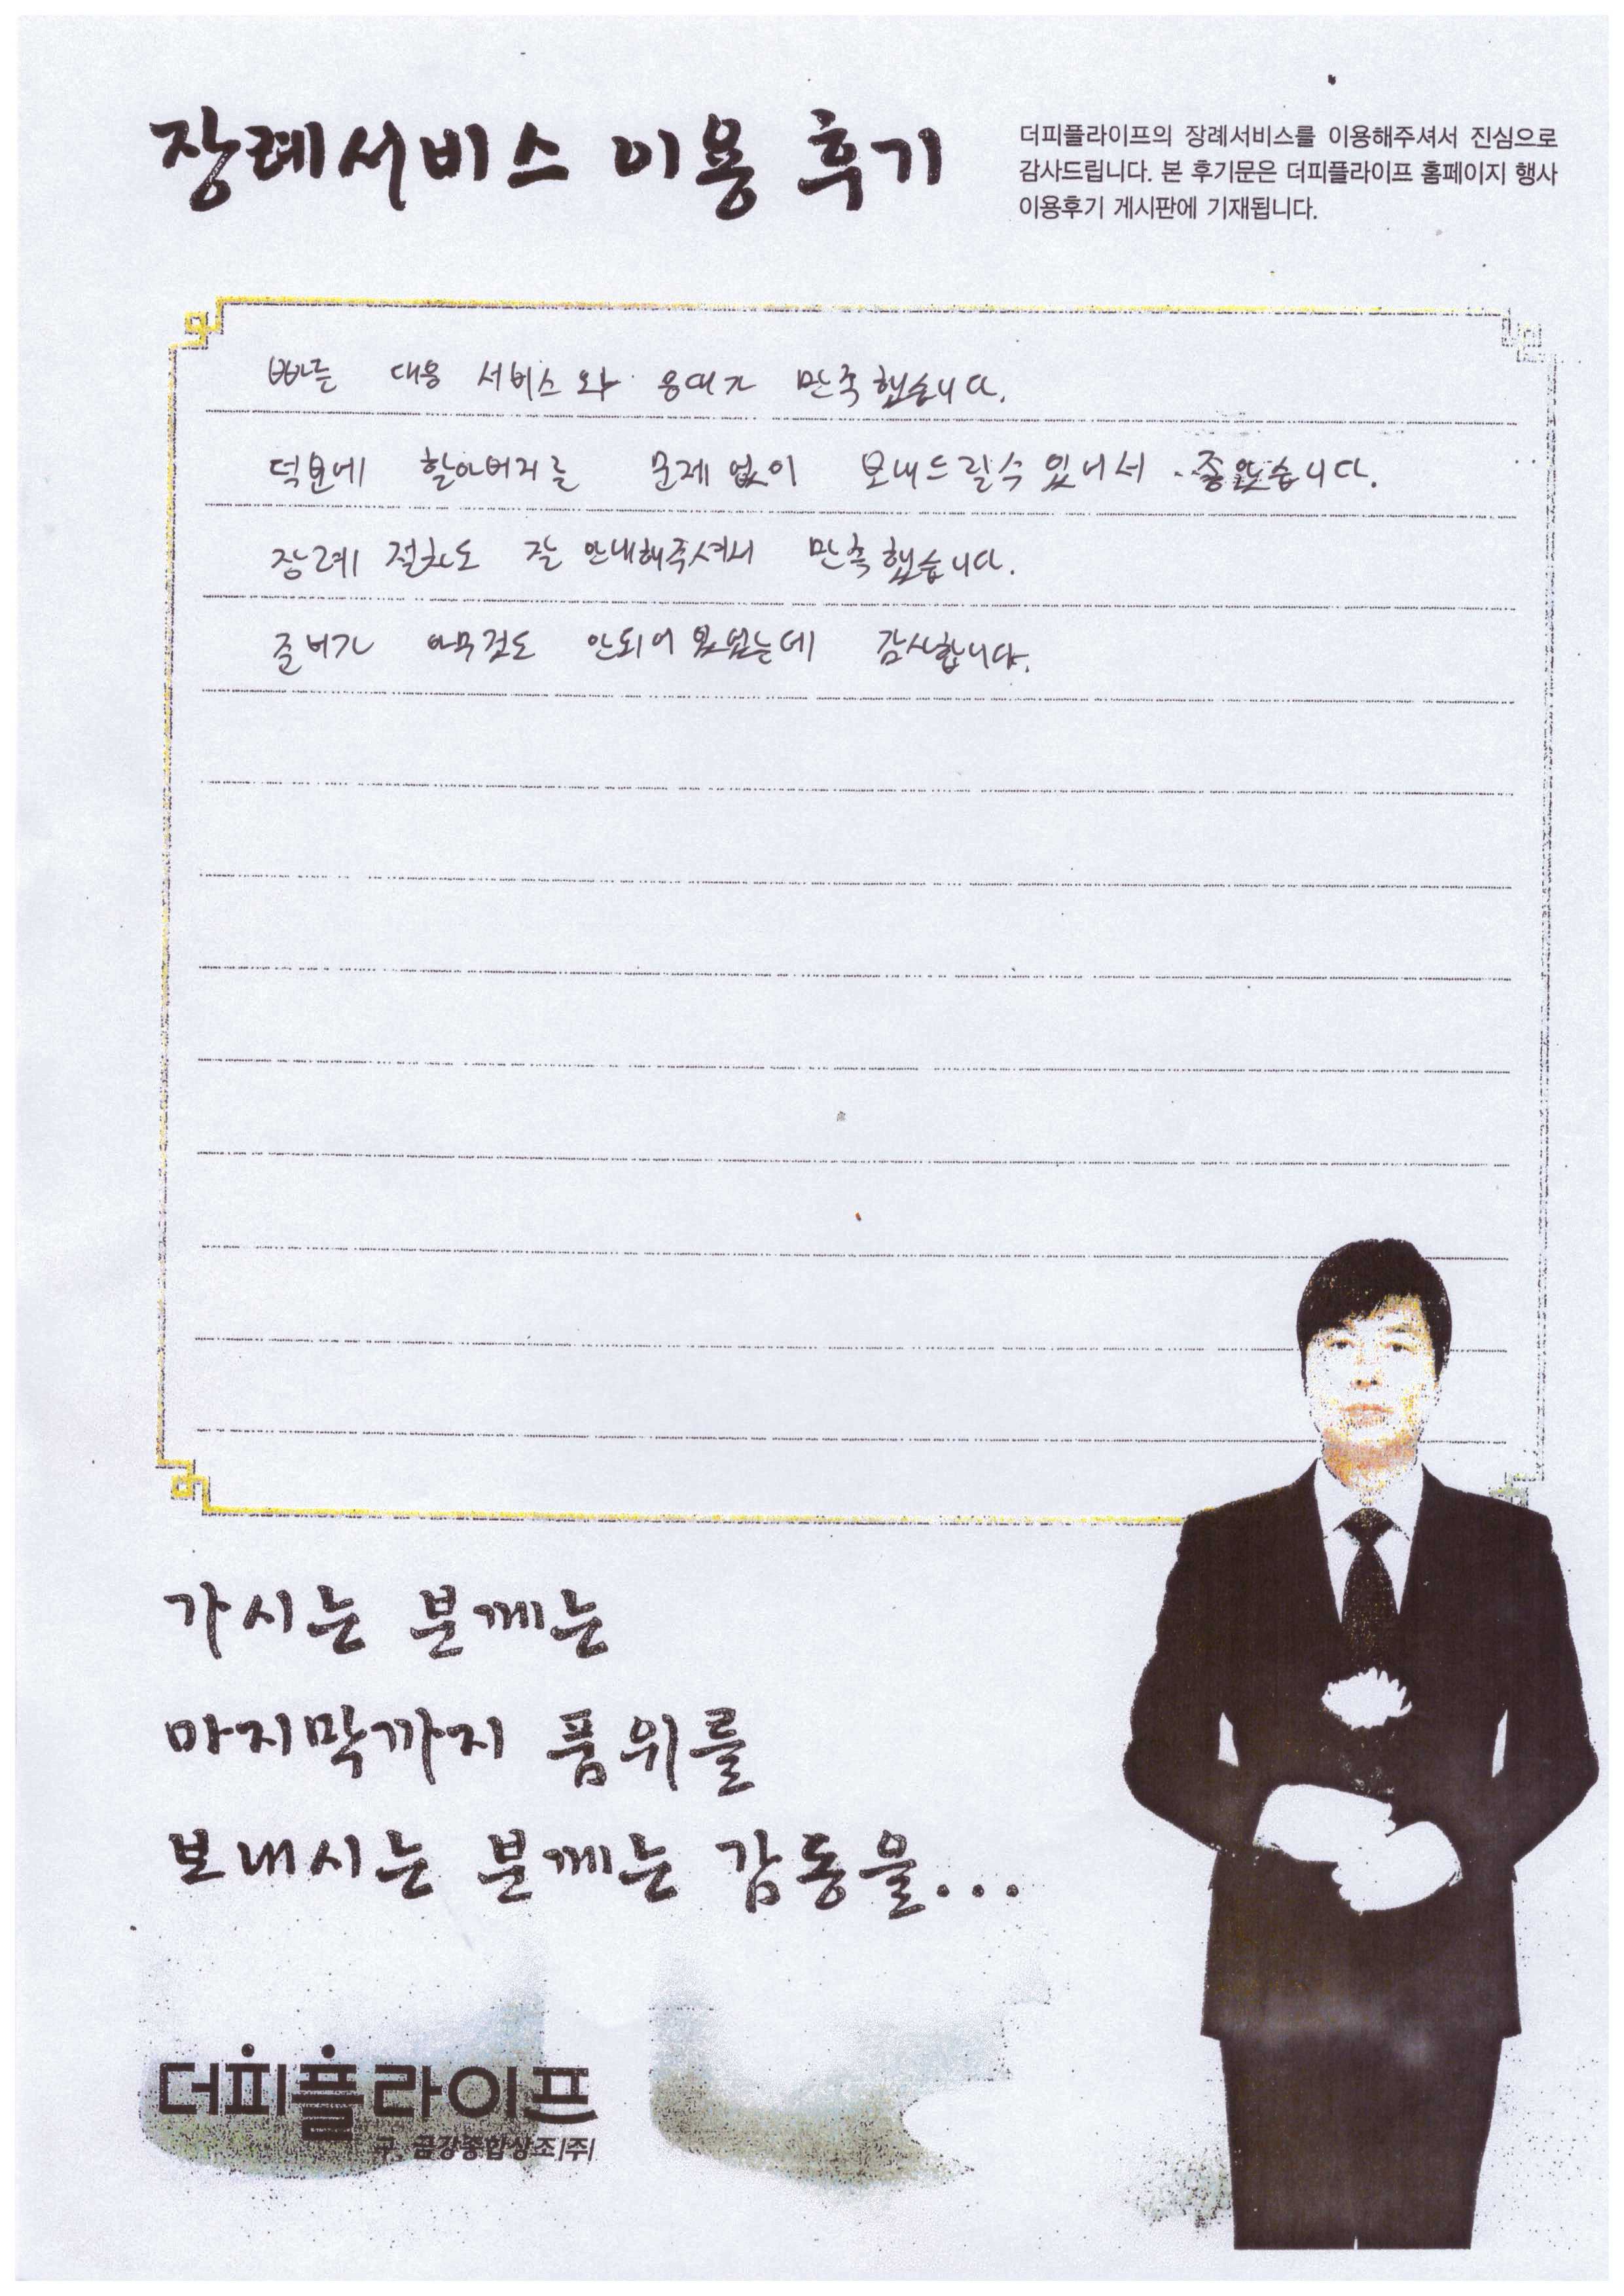 장례서비스 이용 후기
더피플라이프의 장례서비스를 이용해주셔서 진심으로
감사드립니다. 본 후기문은 더피플라이프 홈페이지 행사
이용후기 게시판에 기재됩니다.
빠른 대응 서비스와 응대가 만족했습니다.
덕분에 할아버지를 문제 없이 보내드릴수 있어서 좋았습니다.
장례 절차도 잘 안내해주셔서 만족했습니다.
준비가 아무것도 안되어 있었는데 감사합니다.
가시는 분께는
마지막까지 품위를
보내시는 분께는 감동을...
더피플라이프
구. 금강종합상조(주)